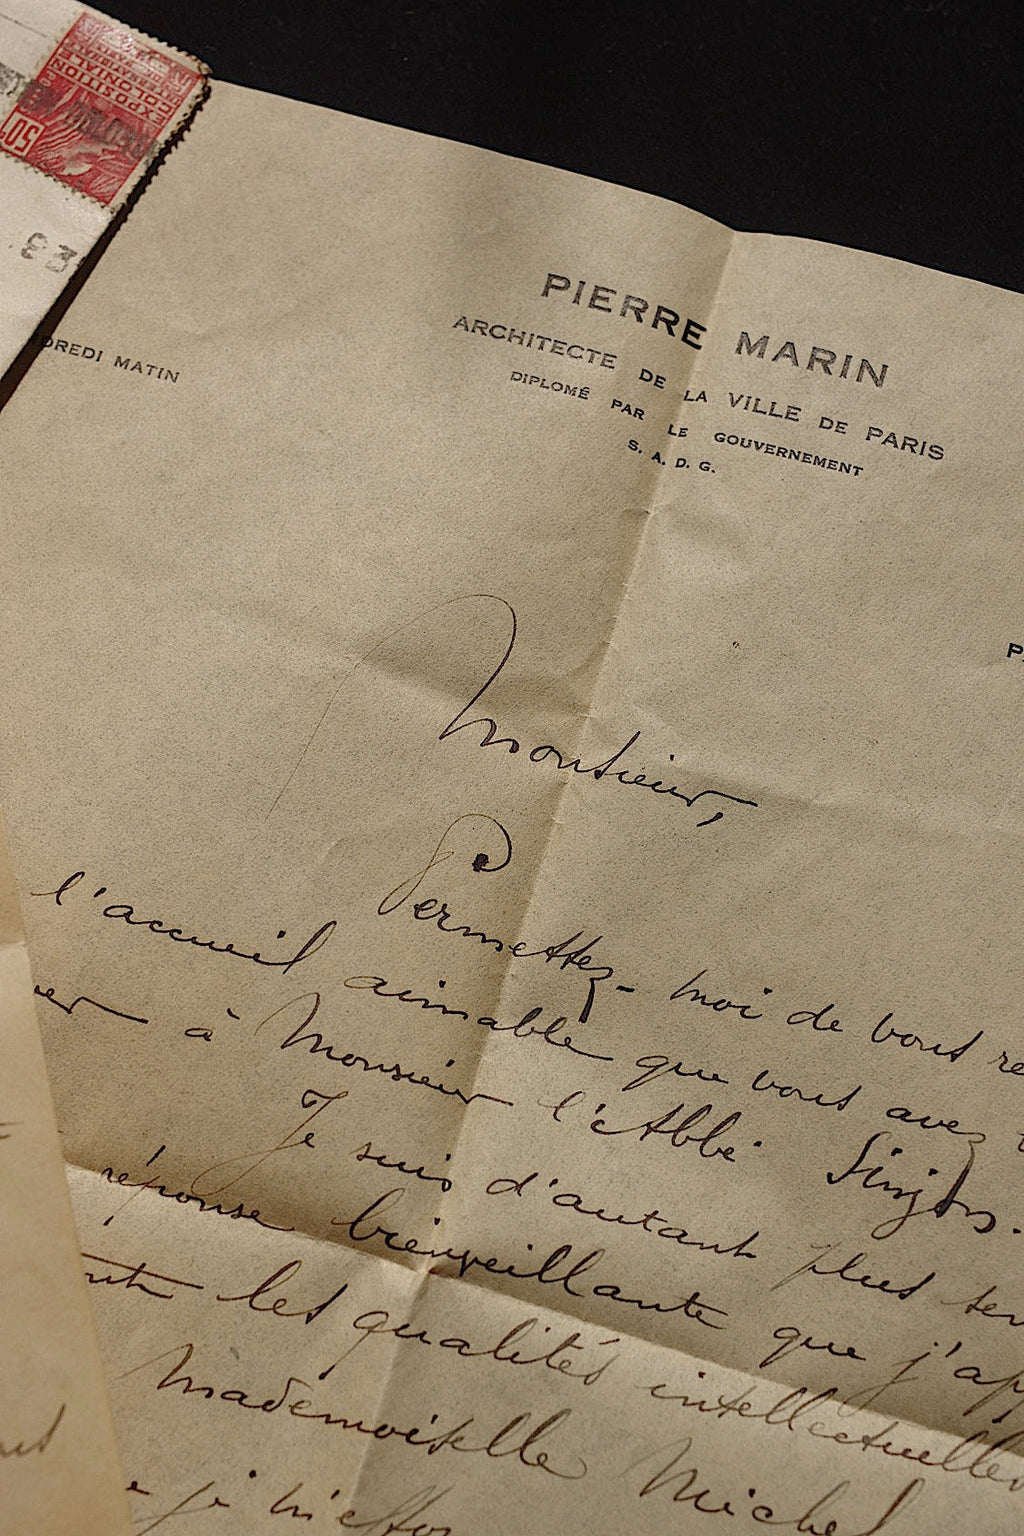 EXPOSITION
COLONIALE
INTERNATIONALE
50
PIERRE MARIN
ARCHITECTE DE LA VILLE DE PARIS
DREDI MATIN
DIPLOMÉ PAR LE GOUVERNEMENT
S. A. D. G.
Monsieur,
Permettez-moi de vous re
l'accueil aimable que vous avez
à Monsieur l'Abbé
Je suis d'autant plus sen
réponse bienveillante que j'app
les qualités intellectuelles
Mademoiselle Michel
je m'effor